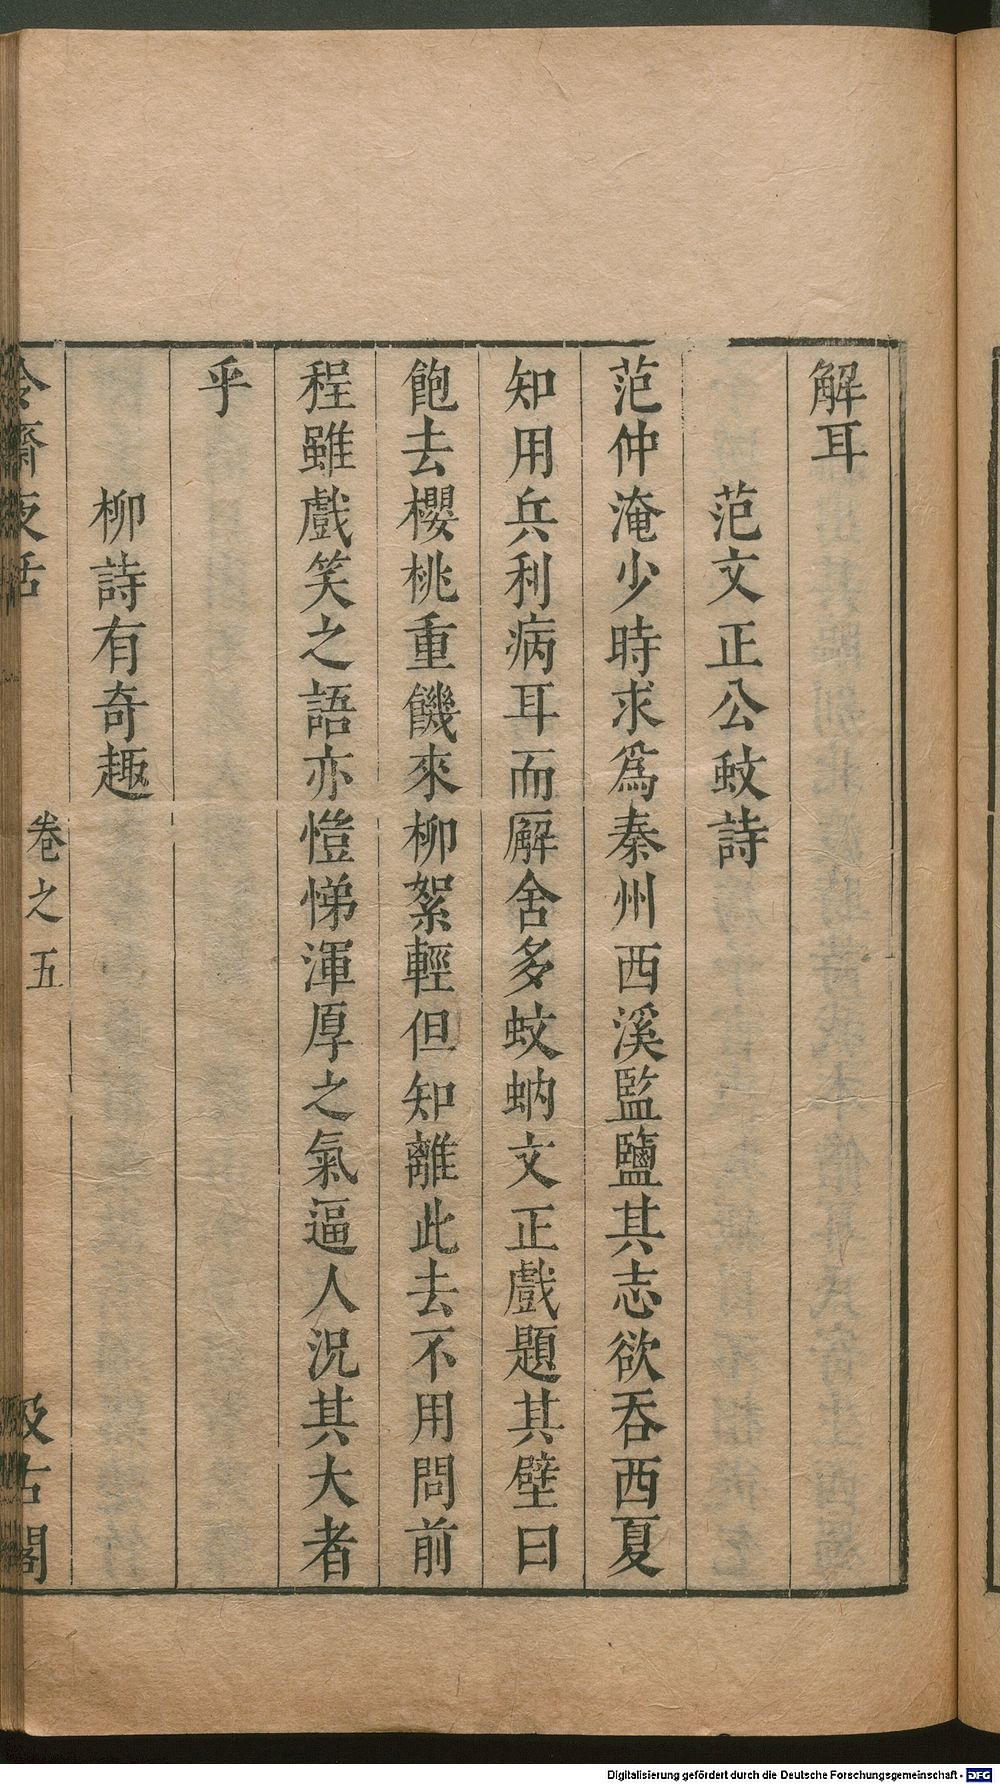 解耳
范文正公蚊詩
范仲淹少時求爲秦州西溪監鹽其志欲吞西夏
知用兵利病耳而廨舍多蚊蚋文正戲題其壁曰
飽去櫻桃重饑來柳絮輕但知離此去不用問前
程雖戲笑之語亦愷悌渾厚之氣逼人況其大者
乎
柳詩有奇趣
冷齋夜話 卷之五 汲古閣
Digitalisierung gefördert durch die Deutsche Forschungsgemeinschaft - DFG